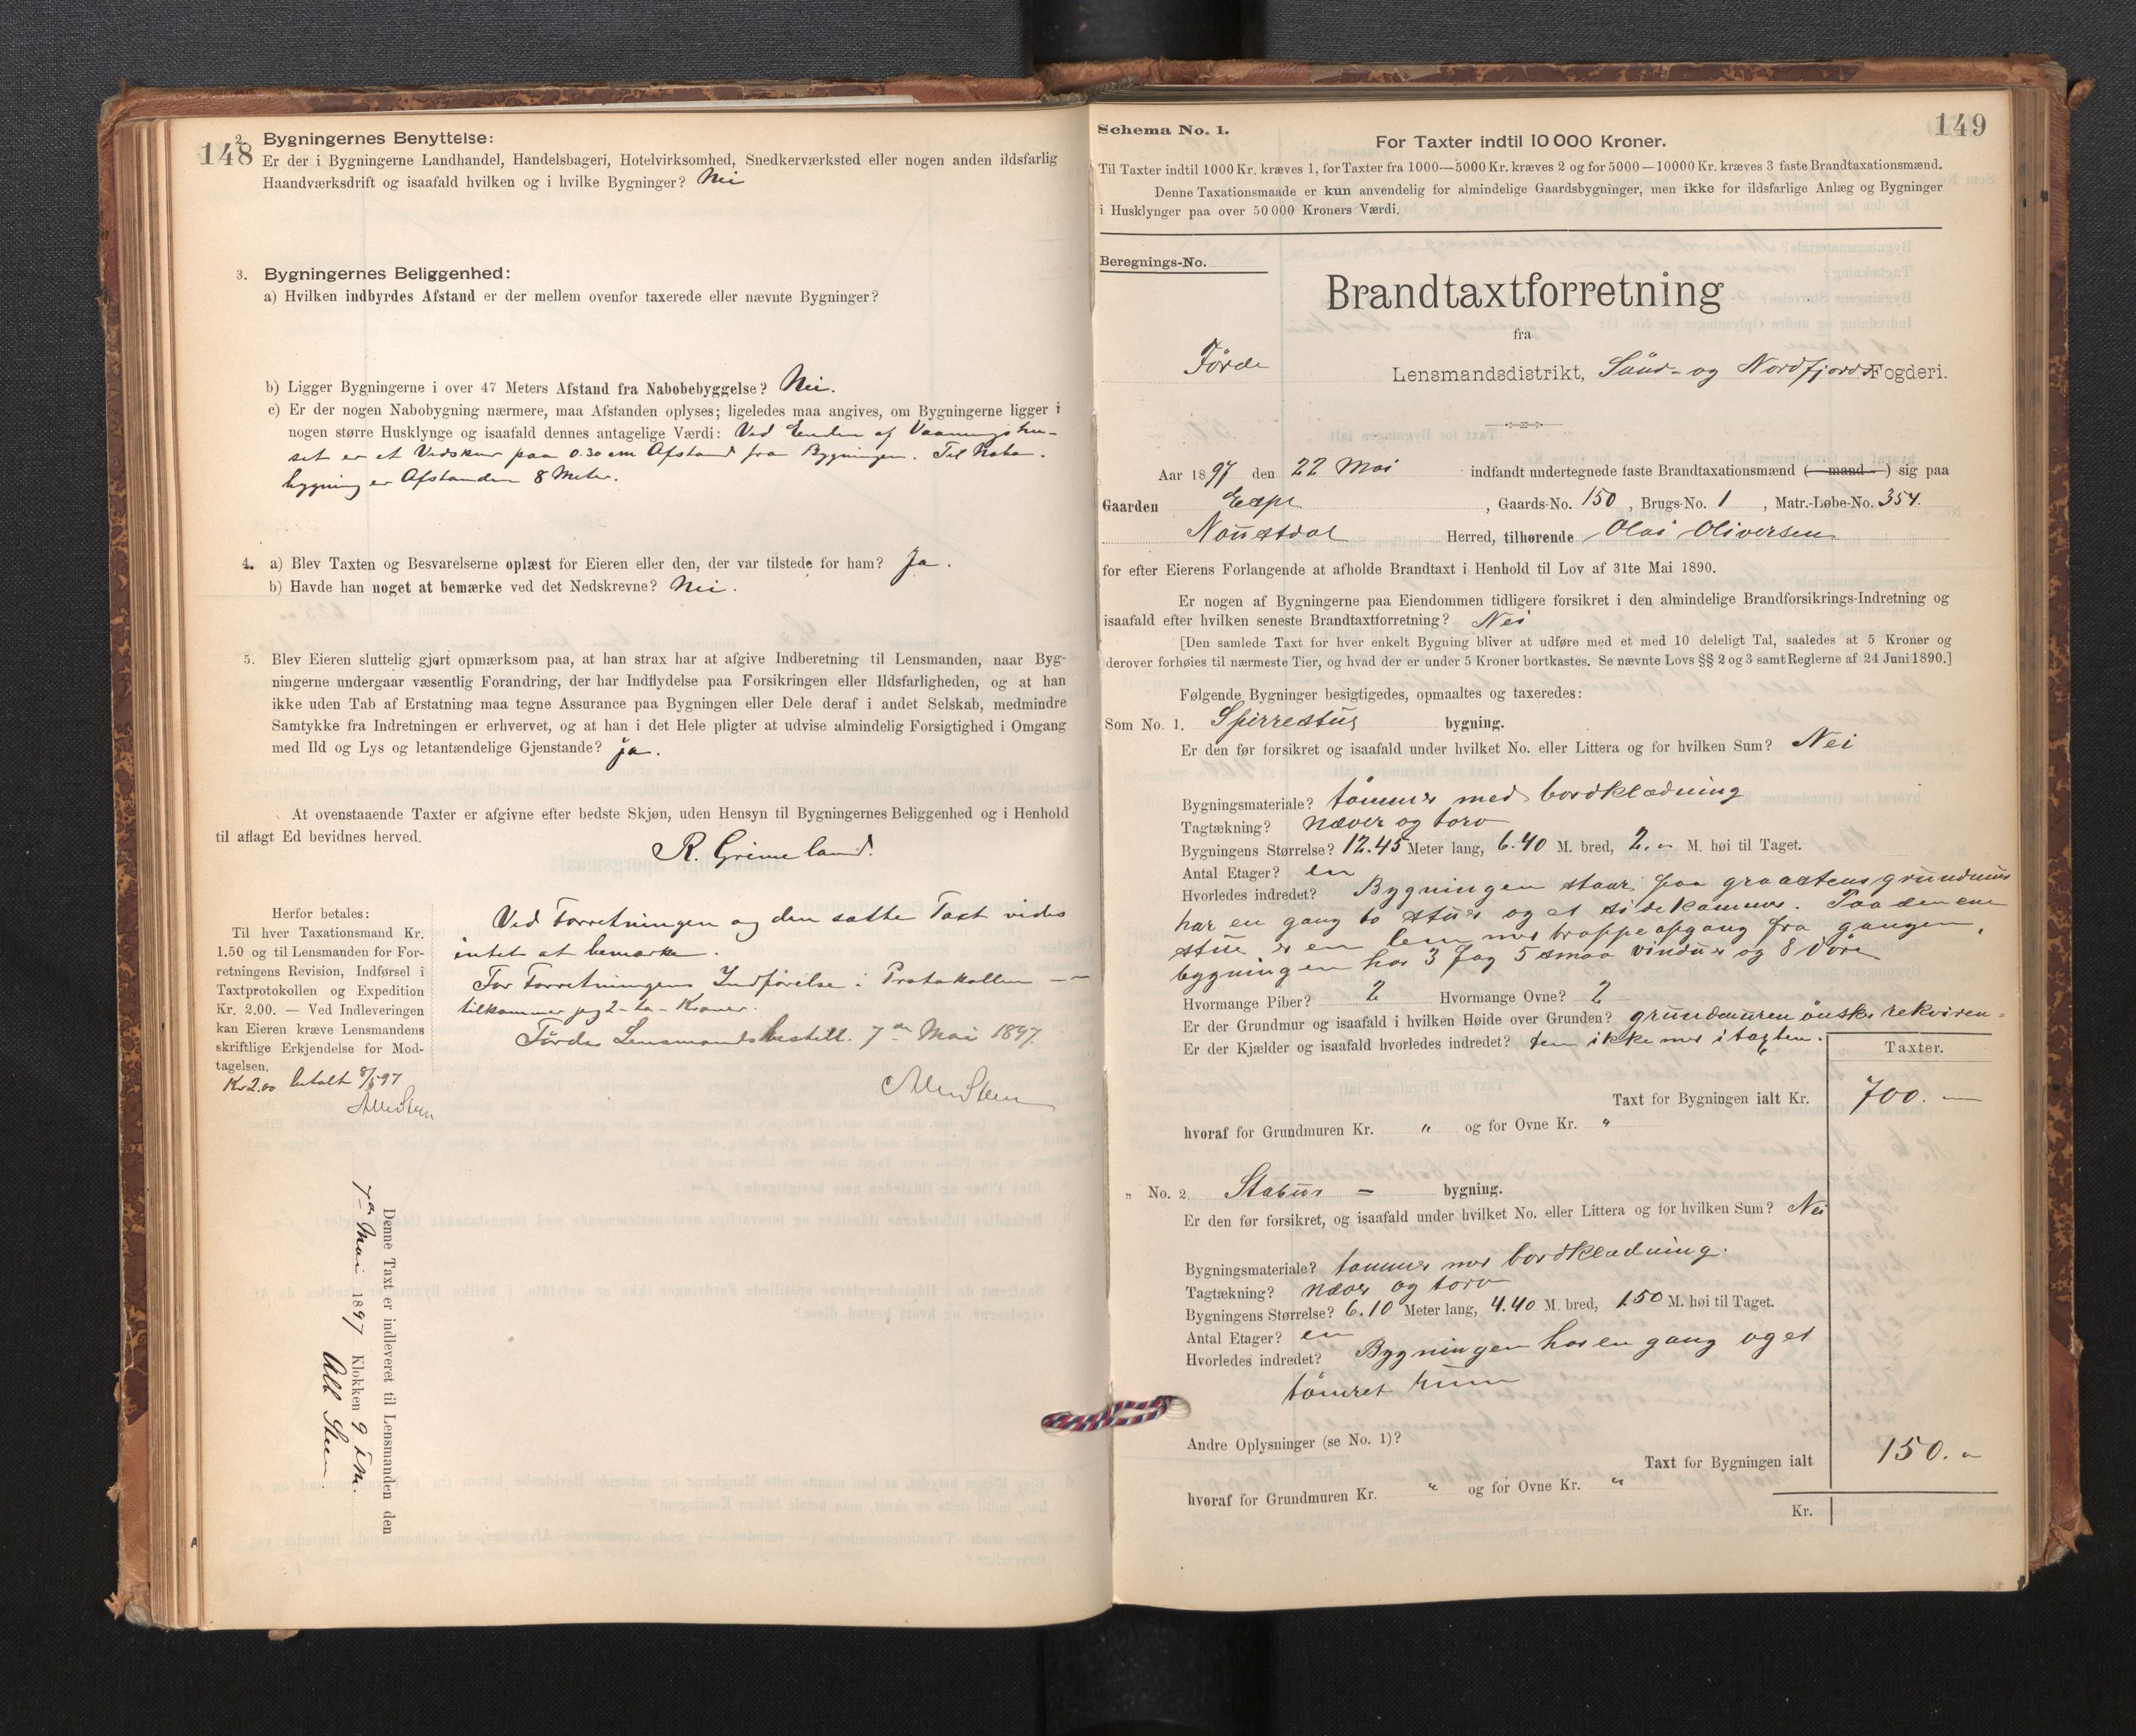 148
2. Bygningernes Benyttelse:
Er der i Bygningerne Landhandel, Handelsbageri, Hotelvirksomhed, Snedkerværksted eller nogen anden ildsfarlig
Haandværksdrift og isaafald hvilken og i hvilke Bygninger? Nei
3. Bygningernes Beliggenhed:
a) Hvilken indbyrdes Afstand er der mellem ovenfor taxerede eller nævnte Bygninger?
b) Ligger Bygningerne i over 47 Meters Afstand fra Nabobebyggelse? Nei.
c) Er der nogen Nabobygning nærmere, maa Afstanden oplyses; ligeledes maa angives, om Bygningerne ligger i
nogen større Husklynge og isaafald dennes antagelige Værdi: Ved Enden af Vaaningshu-
set er et Vedskur paa 0.30 cm Afstand fra Bygningen. Til Nabo-
bygning er Afstanden 8 Meter.
4. a) Blev Taxten og Besvarelserne oplæst for Eieren eller den, der var tilstede for ham? Ja.
b) Havde han noget at bemærke ved det Nedskrevne? Nei.
5. Blev Eieren sluttelig gjort opmærksom paa, at han strax har at afgive Indberetning til Lensmanden, naar Byg-
ningerne undergaar væsentlig Forandring, der har Indflydelse paa Forsikringen eller Ildsfarligheden, og at han
ikke uden Tab af Erstatning maa tegne Assurance paa Bygningen eller Dele deraf i andet Selskab, medmindre
Samtykke fra Indretningen er erhvervet, og at han i det Hele pligter at udvise almindelig Forsigtighed i Omgang
med Ild og Lys og letantændelige Gjenstande? ja.
At ovenstaaende Taxter er afgivne efter bedste Skjøn, uden Hensyn til Bygningernes Beliggenhed og i Henhold
til aflagt Ed bevidnes herved.
R. Grimeland.
Herfor betales:
Til hver Taxationsmand Kr.
1.50 og til Lensmanden for For-
retningens Revision, Indførsel i
Taxtprotokollen og Expedition
Kr. 2.00. — Ved Indleveringen
kan Eieren kræve Lensmandens
skriftlige Erkjendelse for Mod-
tagelsen.
Kr 2.00 betalt 8/5 97
Ved Forretningen og den satte Taxt vides
intet at bemærke.
For Forretningens Indførelse i Protokollen —
tilkommer jeg 2 - to - Kroner.
Førde Lensmandsbestill. 7de Mai 1897.
Denne Taxt er indleveret til Lensmanden den
7de Mai 1897 Klokken 9 Fm.
149
Schema No. 1.
For Taxter indtil 10 000 Kroner.
Til Taxter indtil 1000 Kr. kræves 1, for Taxter fra 1000—5000 Kr. kræves 2 og for 5000—10000 Kr. kræves 3 faste Brandtaxationsmænd.
Denne Taxationsmaade er kun anvendelig for almindelige Gaardsbygninger, men ikke for ildsfarlige Anlæg og Bygninger
i Husklynger paa over 50 000 Kroners Værdi.
Beregnings-No.
Brandtaxtforretning
fra
Førde Lensmandsdistrikt, Sønd- og Nordfjords Fogderi.
Aar 1897 den 22 Mai indfandt undertegnede faste Brandtaxationsmænd (— mand —) sig paa
Gaarden Espe, Gaards-No. 150, Brugs-No. 1, Matr.-Løbe-No. 354.
Naustdal Herred, tilhørende Olai Oliversen
for efter Eierens Forlangende at afholde Brandtaxt i Henhold til Lov af 31te Mai 1890.
Er nogen af Bygningerne paa Eiendommen tidligere forsikret i den almindelige Brandforsikrings-Indretning og
isaafald efter hvilken seneste Brandtaxtforretning? Nei
[Den samlede Taxt for hver enkelt Bygning bliver at udføre med et med 10 deleligt Tal, saaledes at 5 Kroner og
derover forhøies til nærmeste Tier, og hvad der er under 5 Kroner bortkastes. Se nævnte Lovs §§ 2 og 3 samt Reglerne af 24 Juni 1890.]
Følgende Bygninger besigtigedes, opmaaltes og taxeredes:
Som No. 1. Spirrestue bygning.
Er den før forsikret og isaafald under hvilket No. eller Littera og for hvilken Sum? Nei
Bygningsmateriale? tømmer med bordklædning
Tagtækning? næver og torv
Bygningens Størrelse? 12.45 Meter lang, 6.40 M. bred, 2.„ M. høi til Taget.
Antal Etager? en
Hvorledes indredet? Bygningen staar paa graastens grundmur
har en gang to stuer og et sidekammer. Paa den ene
stue er en lem med trappeopgang fra gangen,
bygningen har 3 fag 5 smaa vinduer og 8 døre
Hvormange Piber? 2 Hvormange Ovne? 2
Er der Grundmur og isaafald i hvilken Høide over Grunden? grundmuren ønsker rekviren-
Er der Kjælder og isaafald hvorledes indredet? ten ikke med i taxten.
Taxter.
Taxt for Bygningen ialt Kr. 700. —
hvoraf for Grundmuren Kr. „ og for Ovne Kr. „
„ No. 2 Stabur = bygning.
Er den før forsikret, og isaafald under hvilket No. eller Littera og for hvilken Sum? Nei
Bygningsmateriale? tømmer med bordklædning.
Tagtækning? næver og torv
Bygningens Størrelse? 6.10 Meter lang, 4.40 M. bred, 1.50 M. høi til Taget.
Antal Etager? en
Hvorledes indredet? Bygningen har en gang og et
tømret rum
Andre Oplysninger (se No. 1)?
Taxt for Bygningen ialt 150. „
hvoraf for Grundmuren Kr. „ og for Ovne Kr. „
Kr.